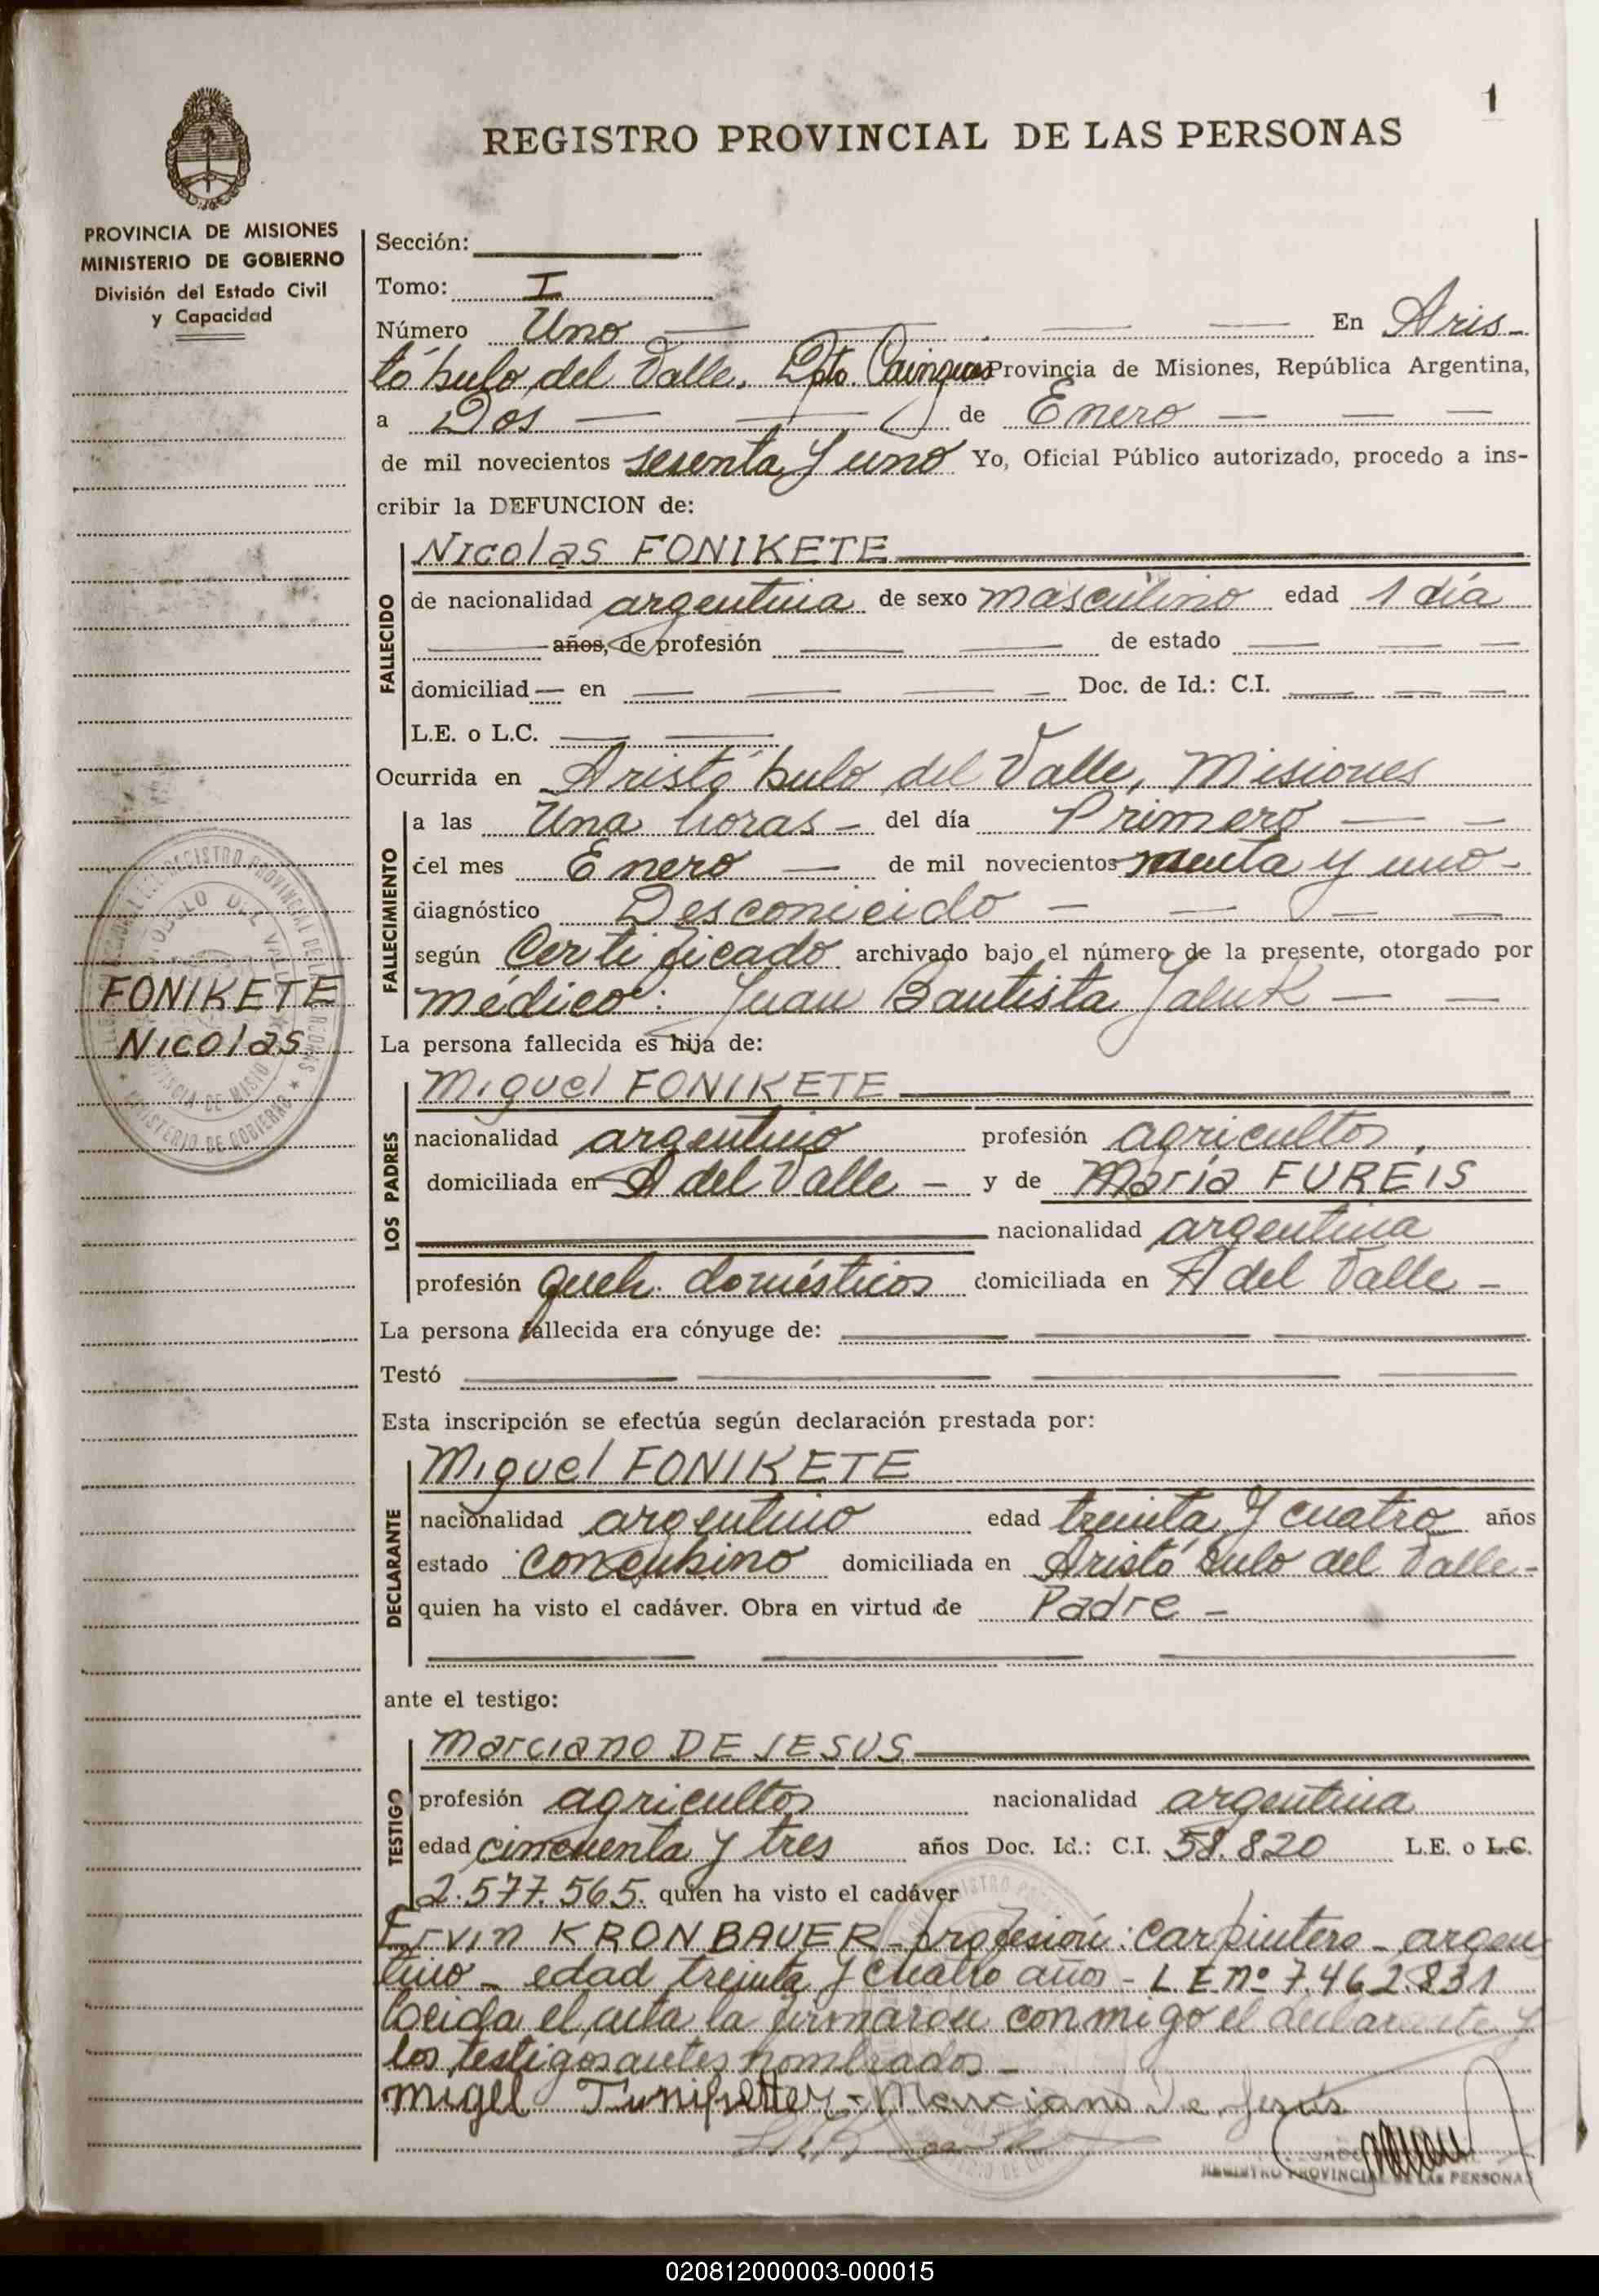 1
REGISTRO PROVINCIAL DE LAS PERSONAS
PROVINCIA DE MISIONES
MINISTERIO DE GOBIERNO
División del Estado Civil
y Capacidad
Sección:
Tomo: I
Número Uno En Aris-
tóbulo del Valle, Dpto. Cainguas Provincia de Misiones, República Argentina,
a Dos de Enero
de mil novecientos sesenta y uno Yo, Oficial Público autorizado, procedo a ins-
cribir la DEFUNCION de:
FALLECIDO
Nicolas FONIKETE
de nacionalidad argentina de sexo masculino edad 1 día
años, de profesión de estado
domiciliad en Doc. de Id.: C.I.
L.E. o L.C.
Ocurrida en Aristóbulo del Valle, Misiones
FALLECIMIENTO
a las Una horas - del día Primero
del mes Enero de mil novecientos y uno-
diagnóstico Desconicido
según Certificado archivado bajo el número de la presente, otorgado por
médico: Juan Bautista
FONIKETE
Nicolas
La persona fallecida es hija de:
LOS PADRES
Miguel FONIKETE
nacionalidad argentino profesión agricultor,
domiciliada en A del Valle - y de María FUREIS
nacionalidad argentina
profesión queh. domésticos domiciliada en A del Valle -
La persona fallecida era cónyuge de:
Testó
Esta inscripción se efectúa según declaración prestada por:
DECLARANTE
Miguel FONIKETE
nacionalidad argentino edad treinta y cuatro años
estado concubino domiciliada en Aristóbulo del Valle-
quien ha visto el cadáver. Obra en virtud de Padre -
ante el testigo:
TESTIGO
Marciano DE JESUS
profesión agricultor nacionalidad argentina
edad cincuenta y tres años Doc. Id.: C.I. 58.820 L.E. o L.C.
2.577.565. quien ha visto el cadáver
Ervin KRONBAUER - profesión: carpintero - argen
tino - edad treinta y cuatro años - L E nº 7.462.831
Leida el acta la firmaron conmigo el declarante y
los testigos antes nombrados -
Marciano de Jesús
REGISTRO PROVINCIAL DE LAS PERSONAS
020812000003-000015